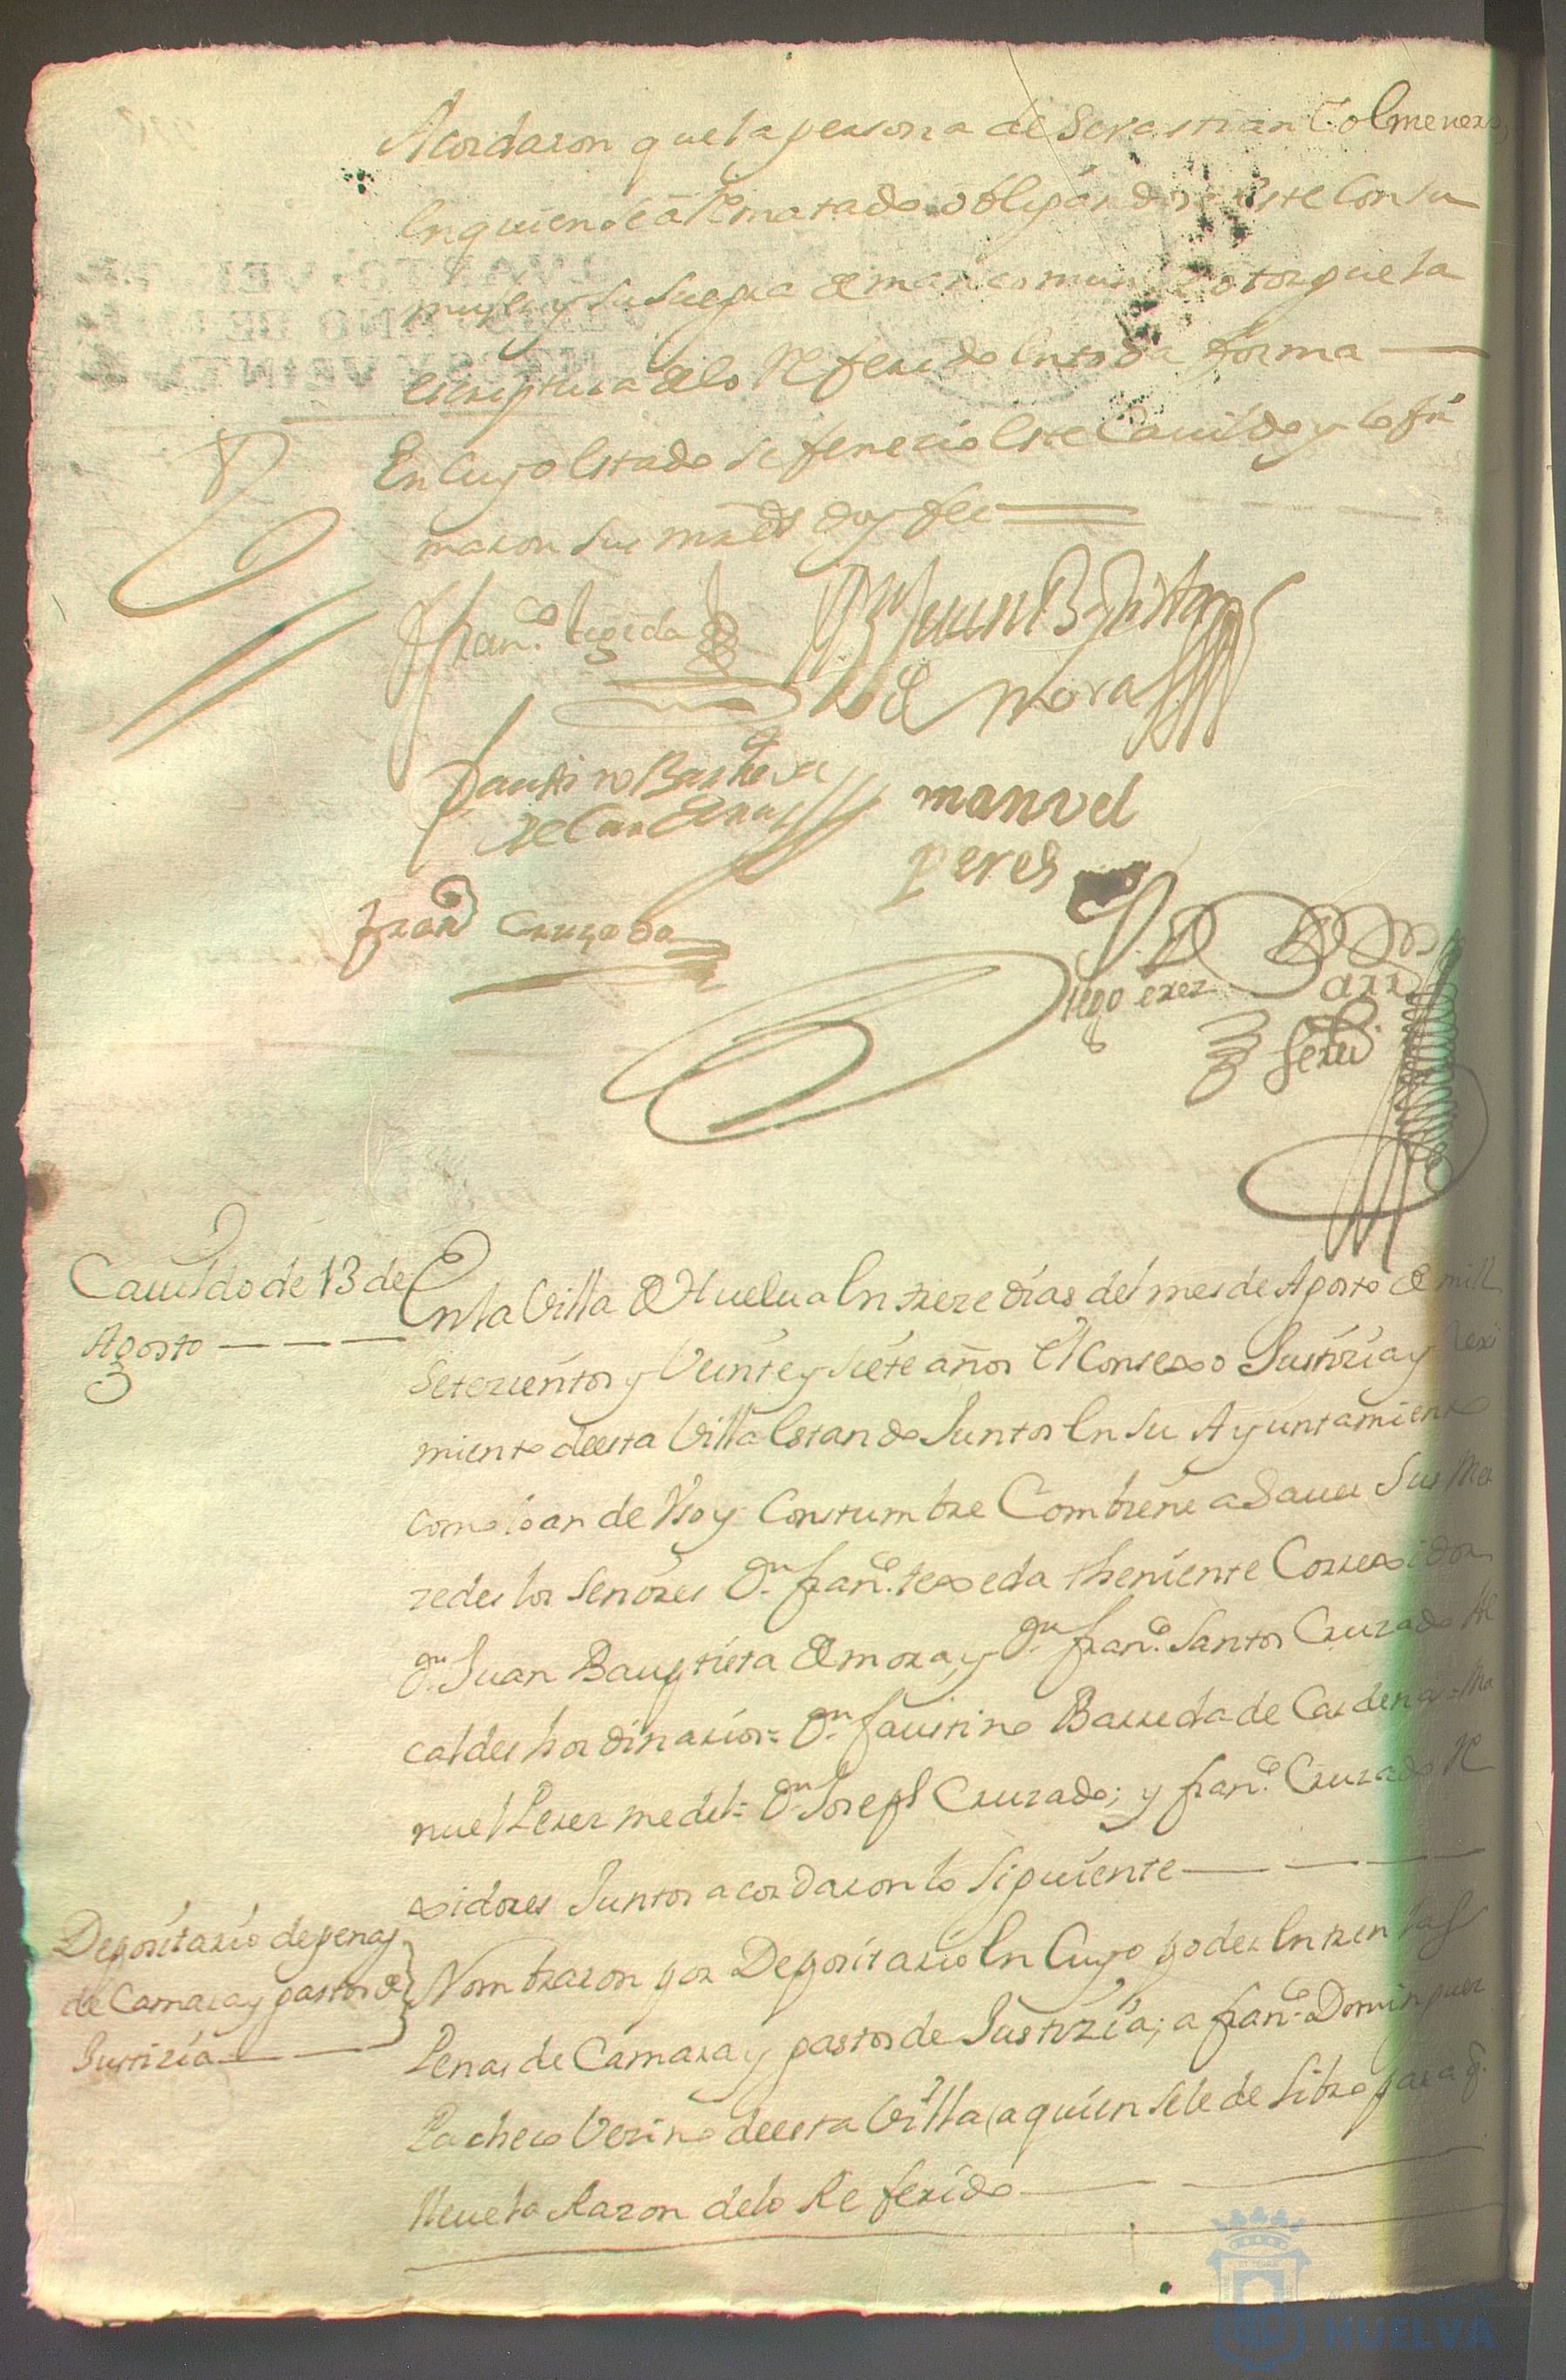 Acordaron que la persona de Sevastian Colmenero,
en quien se á Rematado obligandose este con su
muger y su suegra de mancomun otorgue la
escriptura de lo Referido en toda forma —
En cuyo estado se fenecio este Cauildo y lo fir
maron sus mrds doy fee
Fran.co texeda
Dn Juan Baptista
de Mora
Faustino Barreda
de Cardenas
manvel
peres
Fran.co Cruzado
Diego Perez
Cauildo de 13 de
Agosto — — —
En la Villa de Huelua en treze dias del mes de Agosto de mill
Setezientos y Veinte y siete años el Consexo Justizia y Rexi
miento desta Villa estando Juntos en su Ayuntamiento
como lo an de Vso y Constumbre Combiene a Sauer Sus Mer
zedes los Señores Dn. Fran.co texeda theniente Correxidor
Dn. Juan Bauptista de mora, y Dn. Fran.co Santos Cruzado Al
caldes hordinarios = Dn. faustino Barreda de Cardenas = Ma
nuel Perez medel = Dn. Joseph Cruzado; y fran.co Cruzado Re
xidores Juntos acordaron lo Siguiente — — —
Depositario de penas
de Camara y gastos de
Justizia — —
Nombraron por Depositario en Cuyo poder entren las
Penas de Camara y gastos de Justizia; a fran.co Dominguez
Pacheco Vezino desta Villa, a quien se le de Libro para q.
lleue la Razon de lo Referido — —
HUELVA